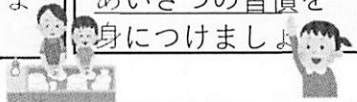 よ
あいさつの習慣を
身につけましょ